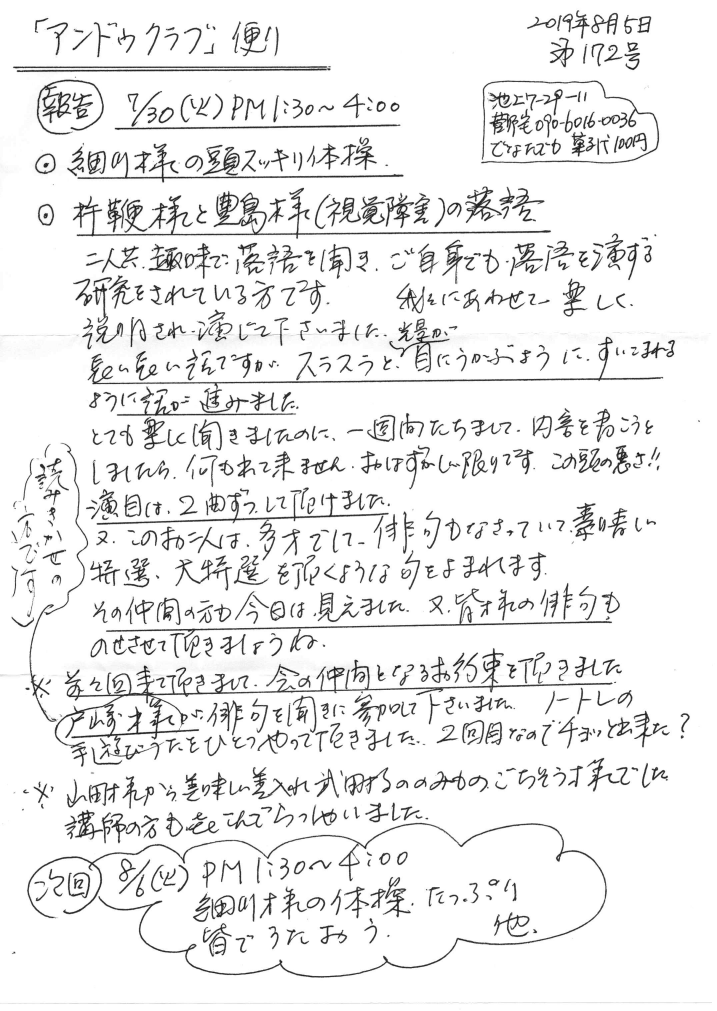 「アンドウクラブ」便り
2019年8月5日
第172号
池上7-29-11
菅野宅 090-6016-0036
どなたでも 菓子代100円
報告 7/30(火) PM1:30~4:00
⊙ 細川様の頭スッキリ体操
⊙ 杵鞭様と豊島様(視覚障害)の落語
二人共、趣味で落語を聞き、ご自身でも落語を演する
研究をされている方です。 私達にあわせて楽しく、
説明され、演じて下さいました。
長い長い話ですが、スラスラと、情景が目にうかぶように、すいこまれる
ように話が進みました。
とても楽しく聞きましたのに、一週間たちまして、内容を書こうと
しましたら、何もれて来ません。おはずかしい限りです。この頭の悪さ!!
演目は、2曲ずつして頂けました。
又、このお二人は、多才でして、俳句もなさっていて、素晴しい
特選、大特選を頂くような句をよまれます。
その仲間の方も今日は、見えました。又、皆様の俳句も
のせさせて頂きましょうね。
※ 前々回来て頂きまして、会の仲間となるお約束を頂きました
戸崎様が俳句を聞きに参加して下さいました。 ノートレの
手遊びうたをひとつやって頂きました。2回目なのでチョッと出来た?
読みきかせの
方です
※ 山田様から美味しい差入れ 武田様ののみもの。ごちそう様でした
講師の方も喜こんでらっしゃいました。
次回 8/6(火) PM1:30~4:00
細川様の体操 たっぷり
皆でうたおう。 他、